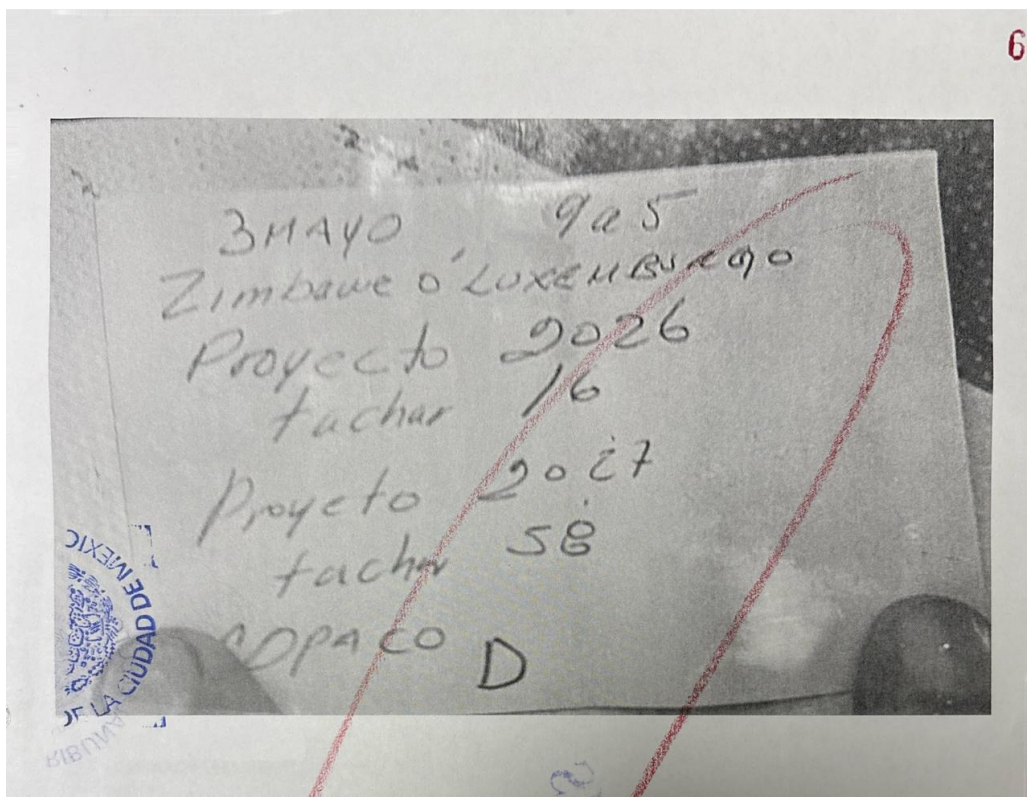 6
3 MAYO 9 a 5
Zimbawe o' LUXEMBURGO
Proyecto 2026
tachar 16
Proyeto 2027
tachar 58
COPACO D
DE LA CIUDAD DE MEXIC